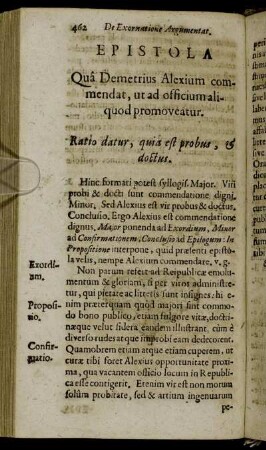 462 De Exornatione Argumentat.
EPISTOLA
Quâ Demetrius Alexium com-
mendat, ut ad officium ali-
quod promoveatur.
Ratio datur, quia est probus, &
doctus.
Hinc formari potest syllogis. Major. Viri
probi & docti sunt commendatione digni,
Minor, Sed Alexius est vir probus & doctus,
Conclusio. Ergo Alexius est commendatione
dignus, Major ponenda ad Exordium, Minor
ad Confirmationem, Conclusio ad Epilogum: In
Propositione interpone, quid præsenti episto-
la velis, nempe Alexium commendare. v. g.
Exordi-
um.
Non parum refert ad Reipublicæ emolu-
mentum & gloriam, si per viros administre-
tur, qui pietate ac literis sunt insignes, hi e-
Proposi-
tio.
nim præterquam quod majori sint commo-
do bono publico, etiam fulgore vitæ, doctri-
næque velut sidera eandem illustrant. cùm è
diverso rudes atque improbi eam dedecorent.
Confir-
matio.
Quamobrem etiam atque etiam cuperem, ut
curæ tibi foret Alexius opportunitate proxi-
ma, qua vacantem officio locum in Republi-
ca esse contigerit. Etenim vir est non morum
solùm probitate, sed & artium ingenuarum
pe-